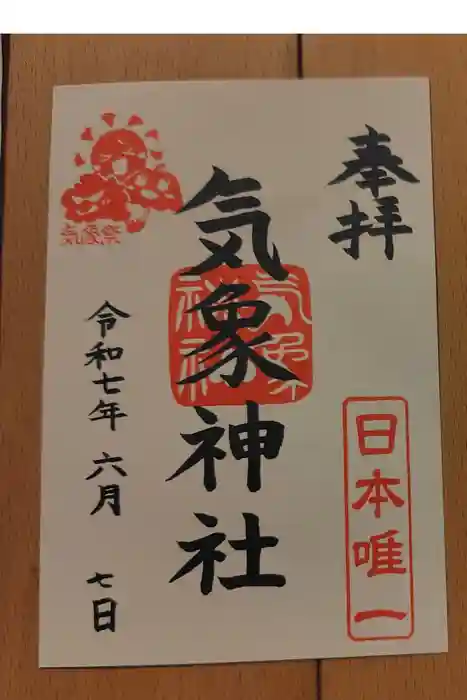 奉拝
日本唯一
気象神社
気象神社
気象祭
令和七年 六月 七日